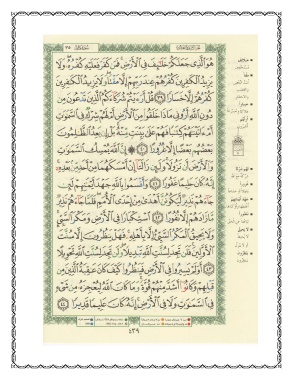 هُوَ ٱلَّذِى جَعَلَكُمْ خَلَـٰٓئِفَ فِى ٱلْأَرْضِ فَمَن كَفَرَ فَعَلَيْهِ كُفْرُهُۥ وَلَا
يَزِيدُ ٱلْكَـٰفِرِينَ كُفْرُهُمْ عِندَ رَبِّهِمْ إِلَّا مَقْتًا وَلَا يَزِيدُ ٱلْكَـٰفِرِينَ
كُفْرُهُمْ إِلَّا خَسَارًا ٣٩ قُلْ أَرَءَيْتُمْ شُرَكَآءَكُمُ ٱلَّذِينَ تَدْعُونَ مِن
دُونِ ٱللَّهِ أَرُونِى مَاذَا خَلَقُوا۟ مِنَ ٱلْأَرْضِ أَمْ لَهُمْ شِرْكٌ فِى ٱلسَّمَـٰوَٰتِ
أَمْ ءَاتَيْنَـٰهُمْ كِتَـٰبًا فَهُمْ عَلَىٰ بَيِّنَتٍ مِّنْهُ بَلْ إِن يَعِدُ ٱلظَّـٰلِمُونَ
بَعْضُهُم بَعْضًا إِلَّا غُرُورًا ٤٠ إِنَّ ٱللَّهَ يُمْسِكُ ٱلسَّمَـٰوَٰتِ
وَٱلْأَرْضَ أَن تَزُولَا وَلَئِن زَالَتَآ إِنْ أَمْسَكَهُمَا مِنْ أَحَدٍ مِّنۢ بَعْدِهِۦٓ
إِنَّهُۥ كَانَ حَلِيمًا غَفُورًا ٤١ وَأَقْسَمُوا۟ بِٱللَّهِ جَهْدَ أَيْمَـٰنِهِمْ لَئِن
جَآءَهُمْ نَذِيرٌ لَّيَكُونُنَّ أَهْدَىٰ مِنْ إِحْدَى ٱلْأُمَمِ فَلَمَّا جَآءَهُمْ نَذِيرٌ
مَّا زَادَهُمْ إِلَّا نُفُورًا ٤٢ ٱسْتِكْبَارًا فِى ٱلْأَرْضِ وَمَكْرَ ٱلسَّيِّئِ
وَلَا يَحِيقُ ٱلْمَكْرُ ٱلسَّيِّئُ إِلَّا بِأَهْلِهِۦ فَهَلْ يَنظُرُونَ إِلَّا سُنَّتَ
ٱلْأَوَّلِينَ فَلَن تَجِدَ لِسُنَّتِ ٱللَّهِ تَبْدِيلًا وَلَن تَجِدَ لِسُنَّتِ ٱللَّهِ تَحْوِيلًا
٤٣ أَوَلَمْ يَسِيرُوا۟ فِى ٱلْأَرْضِ فَيَنظُرُوا۟ كَيْفَ كَانَ عَـٰقِبَةُ ٱلَّذِينَ مِن
قَبْلِهِمْ وَكَانُوٓا۟ أَشَدَّ مِنْهُمْ قُوَّةً وَمَا كَانَ ٱللَّهُ لِيُعْجِزَهُۥ مِن شَىْءٍ
فِى ٱلسَّمَـٰوَٰتِ وَلَا فِى ٱلْأَرْضِ إِنَّهُۥ كَانَ عَلِيمًا قَدِيرًا ٤٤
٤٣٩